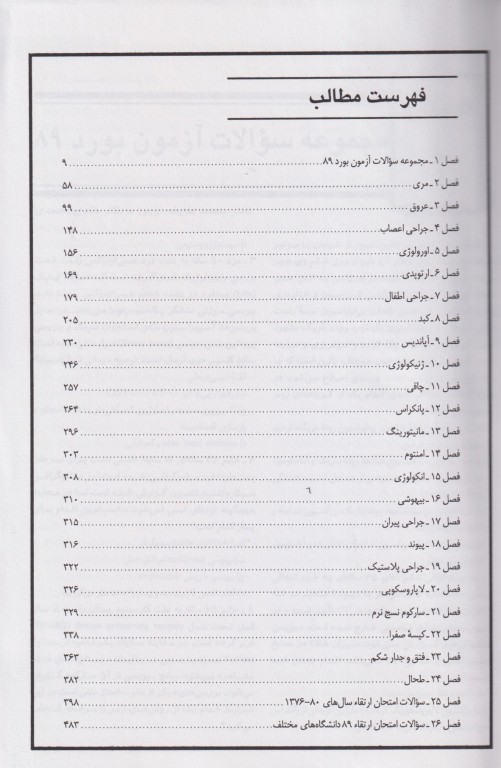 فهرست مطالب
فصل ۱ ـ مجموعه سؤالات آزمون بورد ۸۹ ........ ۹
فصل ۲ ـ مری ........ ۵۸
فصل ۳ ـ عروق ........ ۹۹
فصل ۴ ـ جراحی اعصاب ........ ۱۴۸
فصل ۵ ـ اورولوژی ........ ۱۵۶
فصل ۶ ـ ارتوپدی ........ ۱۶۹
فصل ۷ ـ جراحی اطفال ........ ۱۷۹
فصل ۸ ـ کبد ........ ۲۰۵
فصل ۹ ـ آپاندیس ........ ۲۳۰
فصل ۱۰ ـ ژنیکولوژی ........ ۲۴۶
فصل ۱۱ ـ چاقی ........ ۲۵۷
فصل ۱۲ ـ پانکراس ........ ۲۶۴
فصل ۱۳ ـ مانیتورینگ ........ ۲۹۶
فصل ۱۴ ـ امنتوم ........ ۳۰۳
فصل ۱۵ ـ انکولوژی ........ ۳۰۸
فصل ۱۶ ـ بیهوشی ........ ۳۱۰
فصل ۱۷ ـ جراحی پیران ........ ۳۱۵
فصل ۱۸ ـ پیوند ........ ۳۱۶
فصل ۱۹ ـ جراحی پلاستیک ........ ۳۲۲
فصل ۲۰ ـ لاپاروسکوپی ........ ۳۲۶
فصل ۲۱ ـ سارکوم نسج نرم ........ ۳۲۹
فصل ۲۲ ـ کیسهٔ صفرا ........ ۳۳۸
فصل ۲۳ ـ فتق و جدار شکم ........ ۳۶۳
فصل ۲۴ ـ طحال ........ ۳۸۲
فصل ۲۵ ـ سؤالات امتحان ارتقاء سال‌های ۸۰-۱۳۷۶ ........ ۳۹۸
فصل ۲۶ ـ سؤالات امتحان ارتقاء ۸۹ دانشگاه‌های مختلف ........ ۴۸۳